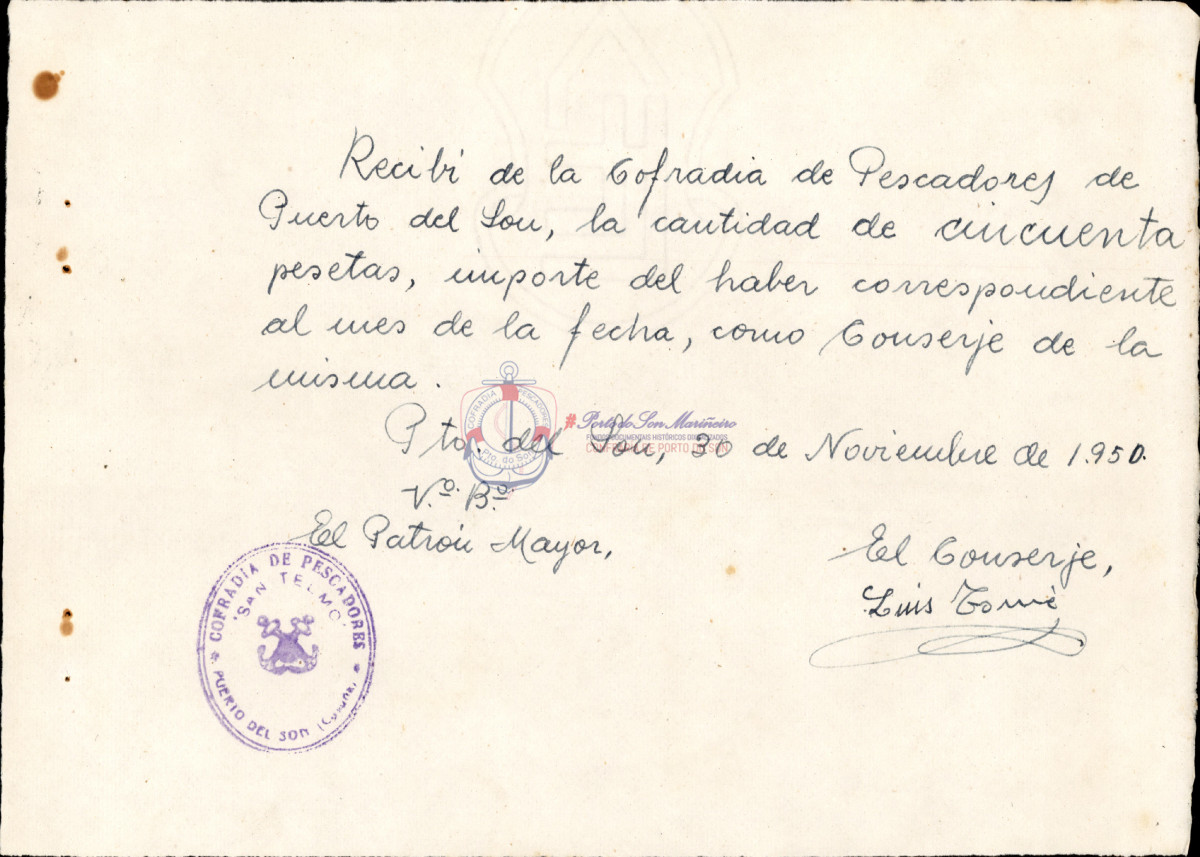 Recibí de la Cofradia de Pescadores de
Puerto del Son, la cantidad de cincuenta
pesetas, importe del haber correspondiente
al mes de la fecha, como Conserje de la
misma.
COFRADIA PESCADORES
Pto. do Son
#Porto do Son Mariñeiro
FONDOS DOCUMENTAIS HISTÓRICOS DIXITALIZADOS
CONFRARÍA DE PORTO DO SON
Pto. del Son, 30 de Noviembre de 1.950.
V.º B.º
El Patrón Mayor,
El Conserje,
Luis Tomé
* COFRADIA DE PESCADORES *
"SAN TELMO"
PUERTO DEL SON (Coruña)